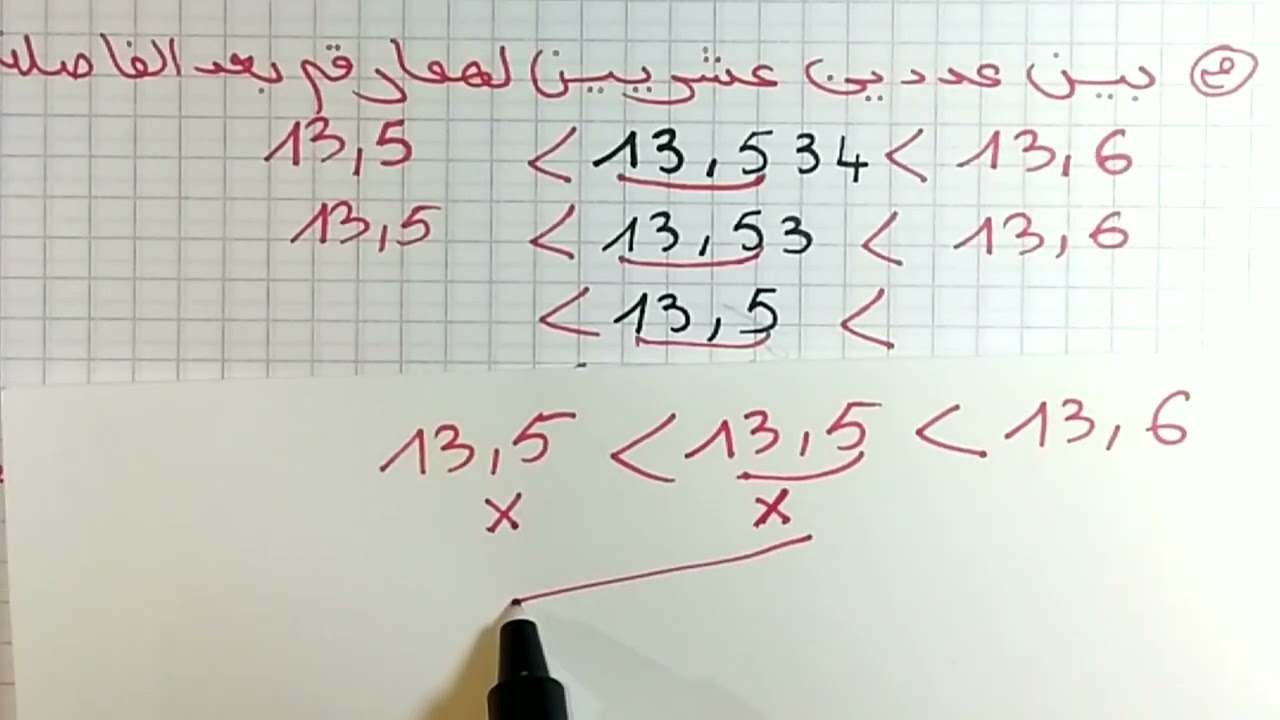 ③ بين عددين عشريين لهما رقم بعد الفاصلة
13,5 < 13,534 < 13,6
13,5 < 13,53 < 13,6
< 13,5 <
13,5 < 13,5 < 13,6
x x